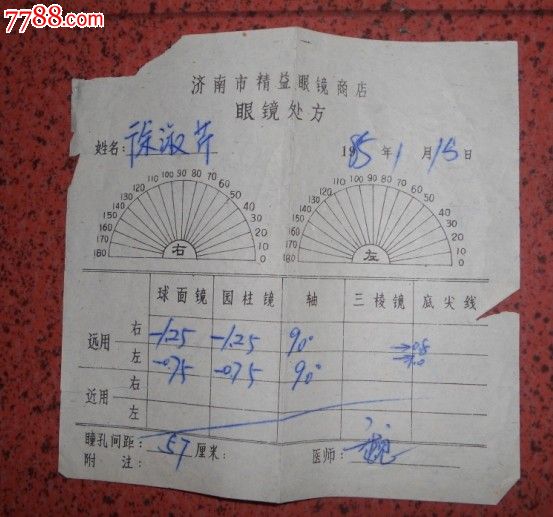 7788.com
济南市精益眼镜商店
眼镜处方
姓名: 徐淑芹 1985年1月15日
180 170 160 150 140 130 120 110 100 90 80 70 60 50 40 30 20 10 0
右
180 170 160 150 140 130 120 110 100 90 80 70 60 50 40 30 20 10 0
左
球面镜 园柱镜 轴 三棱镜 底尖线
远用 右 -1.25 -1.25 90°
左 -0.75 -0.75 90°
近用 右
左
瞳孔间距: 57 厘米:
附注: 医师: